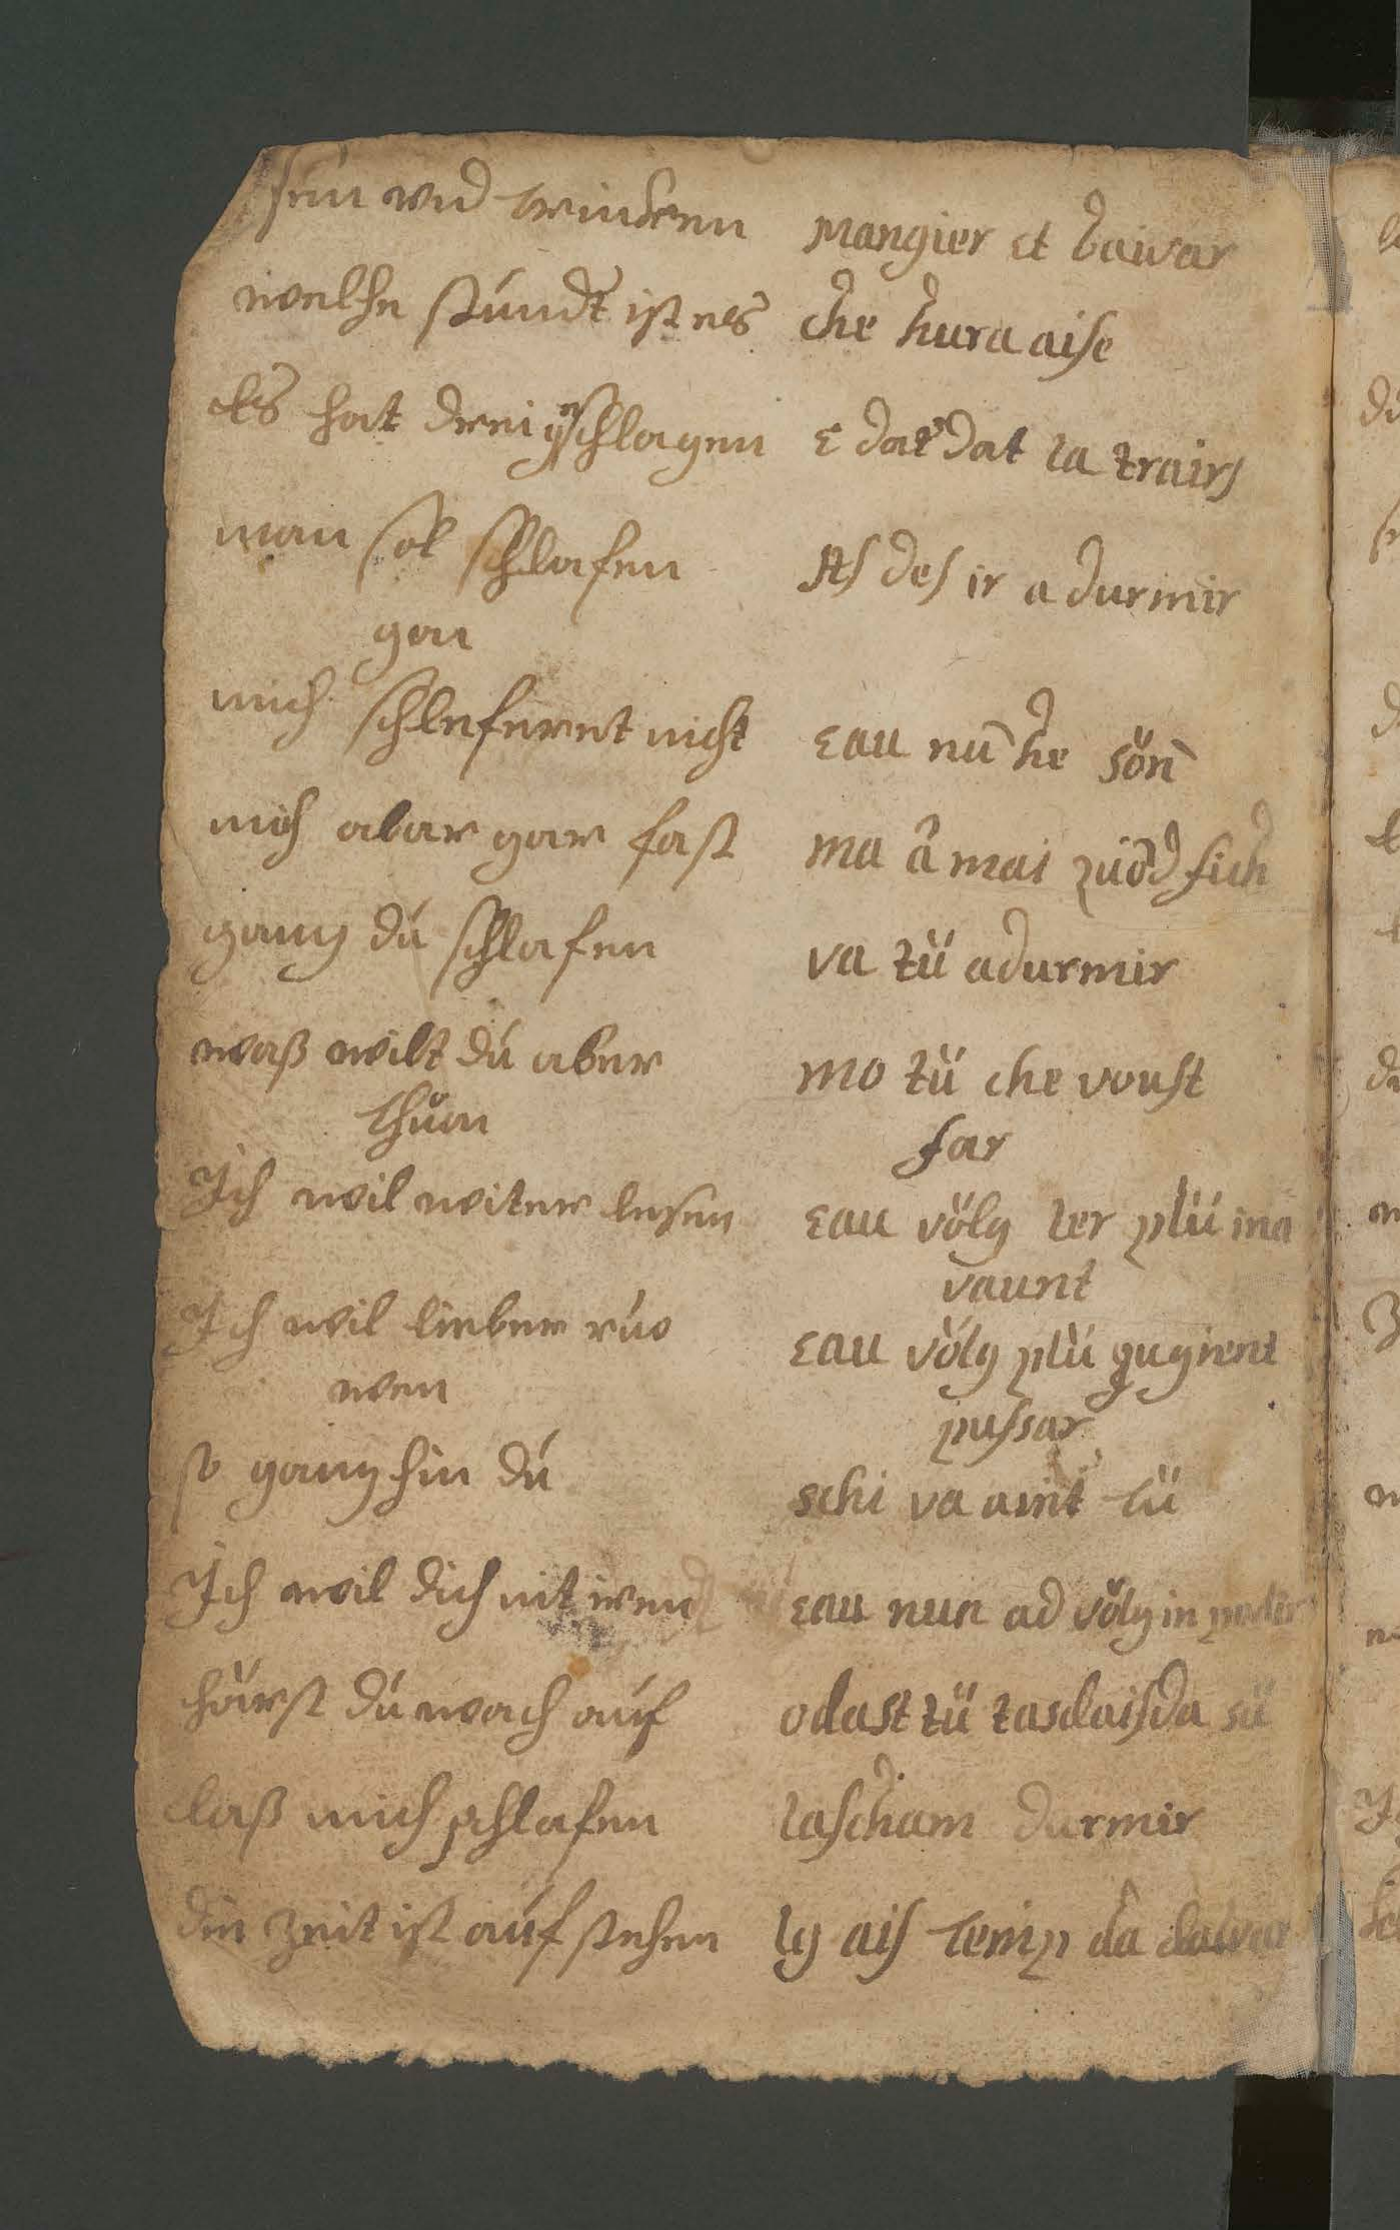 vnd trinckenn mangier et baivar
welche stundt ist es che hura aise
Es hat drei geschlagen e dat dat la trais
man sol schlafen As des ir a durmir
gon
mich schleferet nicht eau nũ he sön
mich abar gar fast ma â mai zuőd fich
gang du schlafen va tü a durmir
waß wilt du aber mo tü che voust
thuon far
Ich wil witer lesen eau völg ler plü ina
vaunt
Ich wil lieber ruo eau völg plü gugient
wen pussar
so gang hin du schi va aint tü
Ich wil dich nit eau nun ad völg in
hörst du wach auf odast tü tasdaisda sü
laß mich schlafen lascham durmir
die zeit ist auf stehen lg ais temp da